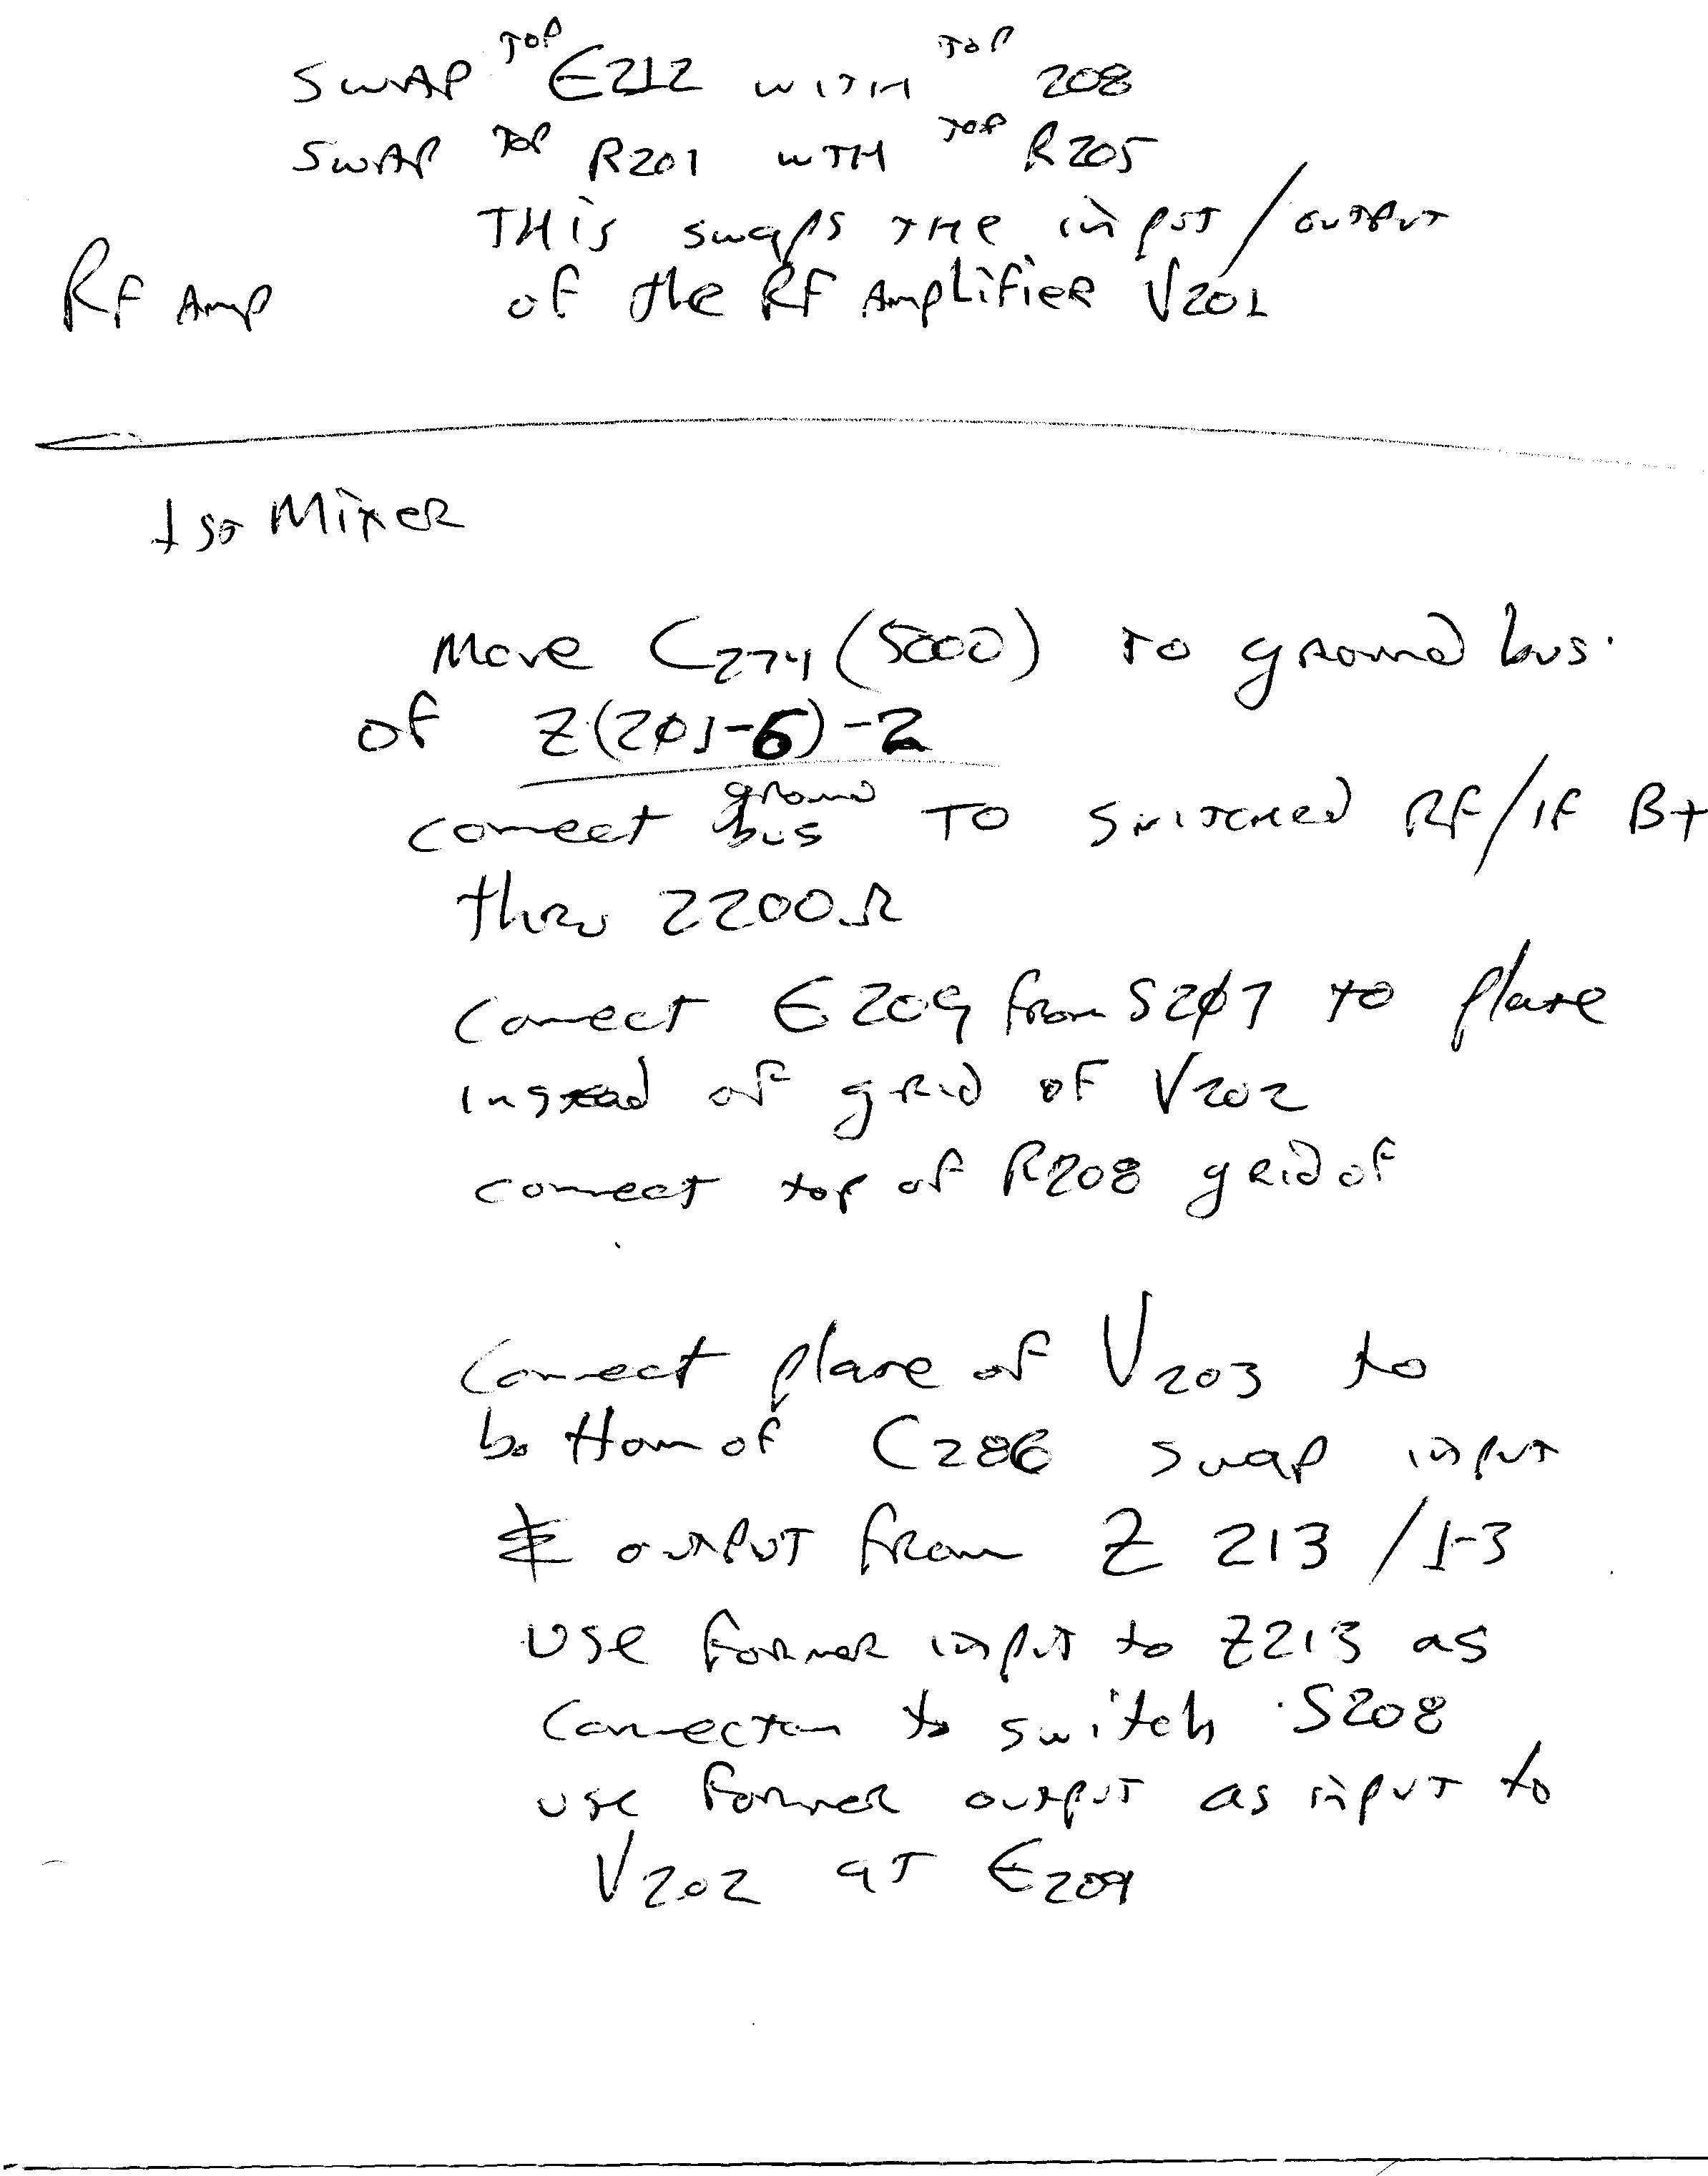 SWAP TOP E212 WITH TOP 208
SWAP TOP R201 WTH TOP R205
THis swaps THE input / output
RF Amp of the RF AmpLifier V201
1st Mixer
Move C274 (5000) TO ground bus.
of Z(201-6)-2
connect ground bus TO SWITCHED RF/IF B+
thru 2200Ω
connect E209 from S207 to plate
instead of grid of V202
connect top of R208 grid of
connect plate of V203 to
bottom of C286 swap input
& output from Z 213 / 1-3
use former input to Z213 as
connecton to switch S208
use former output as input to
V202 at E209